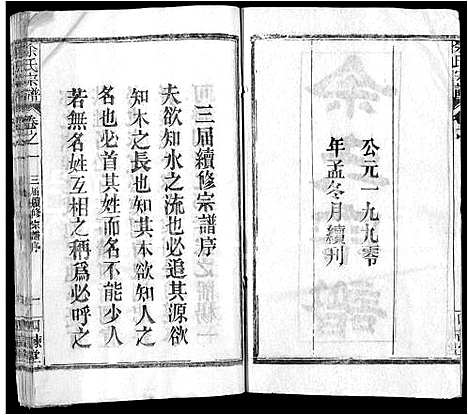 公元一九九零
年孟冬月續刊
三届續修宗譜序
夫欲知水之流也必追其源欲
知木之長也知其本欲知人之
名也必首其姓而名不能少人
若無名姓互相之稱爲必呼之
余氏宗譜
卷之一
三届續修宗譜序
一